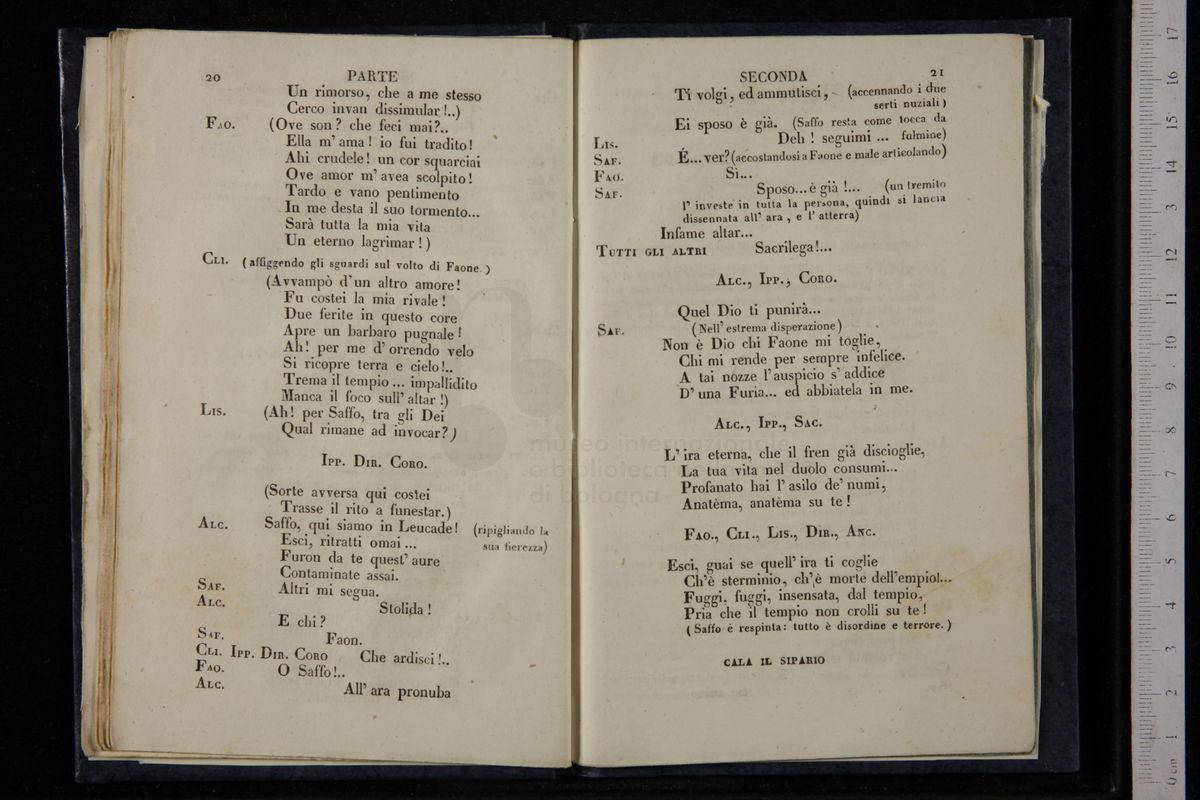 20
PARTE
Un rimorso, che a me stesso
Cerco invan dissimular!..)
FAO. (Ove son? che feci mai?..
Ella m' ama! io fui tradito!
Ahi crudele! un cor squarciai
Ove amor m' avea scolpito!
Tardo e vano pentimento
In me desta il suo tormento...
Sarà tutta la mia vita
Un eterno lagrimar!)
CLI. (affiggendo gli sguardi sul volto di Faone.)
(Avvampò d' un altro amore!
Fu costei la mia rivale!
Due ferite in questo core
Apre un barbaro pugnale!
Ah! per me d' orrendo velo
Si ricopre terra e cielo!..
Trema il tempio... impallidito
Manca il foco sull' altar!)
LIS. (Ah! per Saffo, tra gli Dei
Qual rimane ad invocar?)
IPP. DIR. CORO.
(Sorte avversa qui costei
Trasse il rito a funestar.)
ALC. Saffo, qui siamo in Leucade! (ripigliando la
Esci, ritratti omai... sua fierezza)
Furon da te quest' aure
Contaminate assai.
SAF. Altri mi segua.
ALC. Stolida!
E chi?
SAF. Faon.
CLI. IPP. DIR. CORO Che ardisci!..
FAO. O Saffo!..
ALC. All' ara pronuba
SECONDA
21
Ti volgi, ed ammutisci, (accennando i due
serti nuziali)
Ei sposo è già. (Saffo resta come tocca da
LIS. Deh! seguimi... fulmine)
SAF. É... ver? (accostandosi a Faone e male articolando)
FAO. Sì...
SAF. Sposo... è già!... (un tremito
l' investe in tutta la persona, quindi si lancia
dissennata all' ara, e l' atterra)
Infame altar...
TUTTI GLI ALTRI Sacrilega!...
ALC., IPP., CORO.
Quel Dio ti punirà...
SAF. (Nell' estrema disperazione)
Non è Dio chi Faone mi toglie,
Chi mi rende per sempre infelice.
A tai nozze l' auspicio s' addice
D' una Furia... ed abbiatela in me.
ALC., IPP., SAC.
L' ira eterna, che il fren già discioglie,
La tua vita nel duolo consumi...
Profanato hai l' asilo de' numi,
Anatèma, anatèma su te!
FAO., CLI., LIS., DIR., ANC.
Esci, guai se quell' ira ti coglie
Ch'è sterminio, ch'è morte dell'empio!...
Fuggi, fuggi, insensata, dal tempio,
Pria che il tempio non crolli su te!
(Saffo è respinta: tutto è disordine e terrore.)
CALA IL SIPARIO
museo internazionale
e biblioteca
di bologna
0 cm 1 2 3 4 5 6 7 8 9 10 11 12 3 14 15 16 17